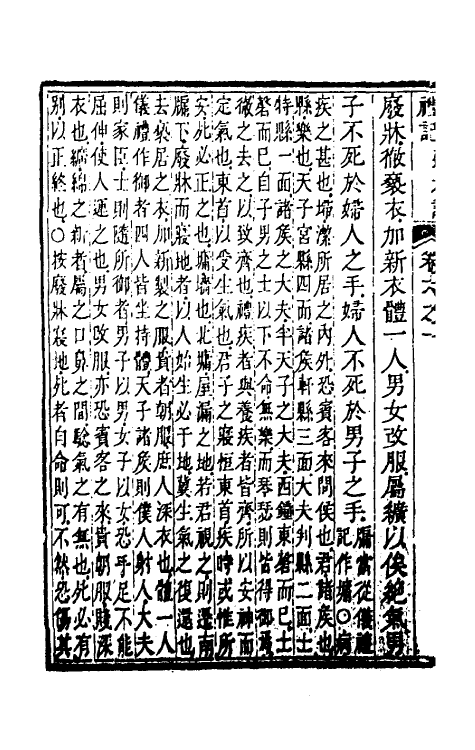 廢牀徹褻衣加新衣體一人男女改服屬纊以俟絕氣男
子不死於婦人之手婦人不死於男子之手牖當從儀禮記作墉○病
疾之甚也埽潔所居之內外恐賓客來問俟也君諸侯也
縣樂也天子宮縣四面諸侯軒縣三面大夫判縣二面士
特縣一面諸侯之大夫半天子之大夫西鐘東磬而已士
磬而已自子男之士以下不命無樂而琴瑟則皆得御焉
徹之去之以致齊也禮疾者與養疾者皆齊所以安神而
定氣也東首以受生氣也君子之寢恒東首疾時或惟所
安死必正之也墉牆也北墉屋漏之地若君視之則遷南
牖下廢牀而寢地者以人始生必于地冀生氣之復還也
去疾居之衣加新製之服貴者朝服庶人深衣也體一人
儀禮作御者四人皆坐持體天子諸侯則僕人射人大夫
則家臣士則隨所御者男子以男女子以女恐手足不能
屈伸使人運之也男女改服亦恐賓客之來貴朝服賤深
衣也纊綿之新者屬之口鼻之間驗氣之有無也死必有
別以正終也○按廢牀寢地死者自命則可不然恐傷其